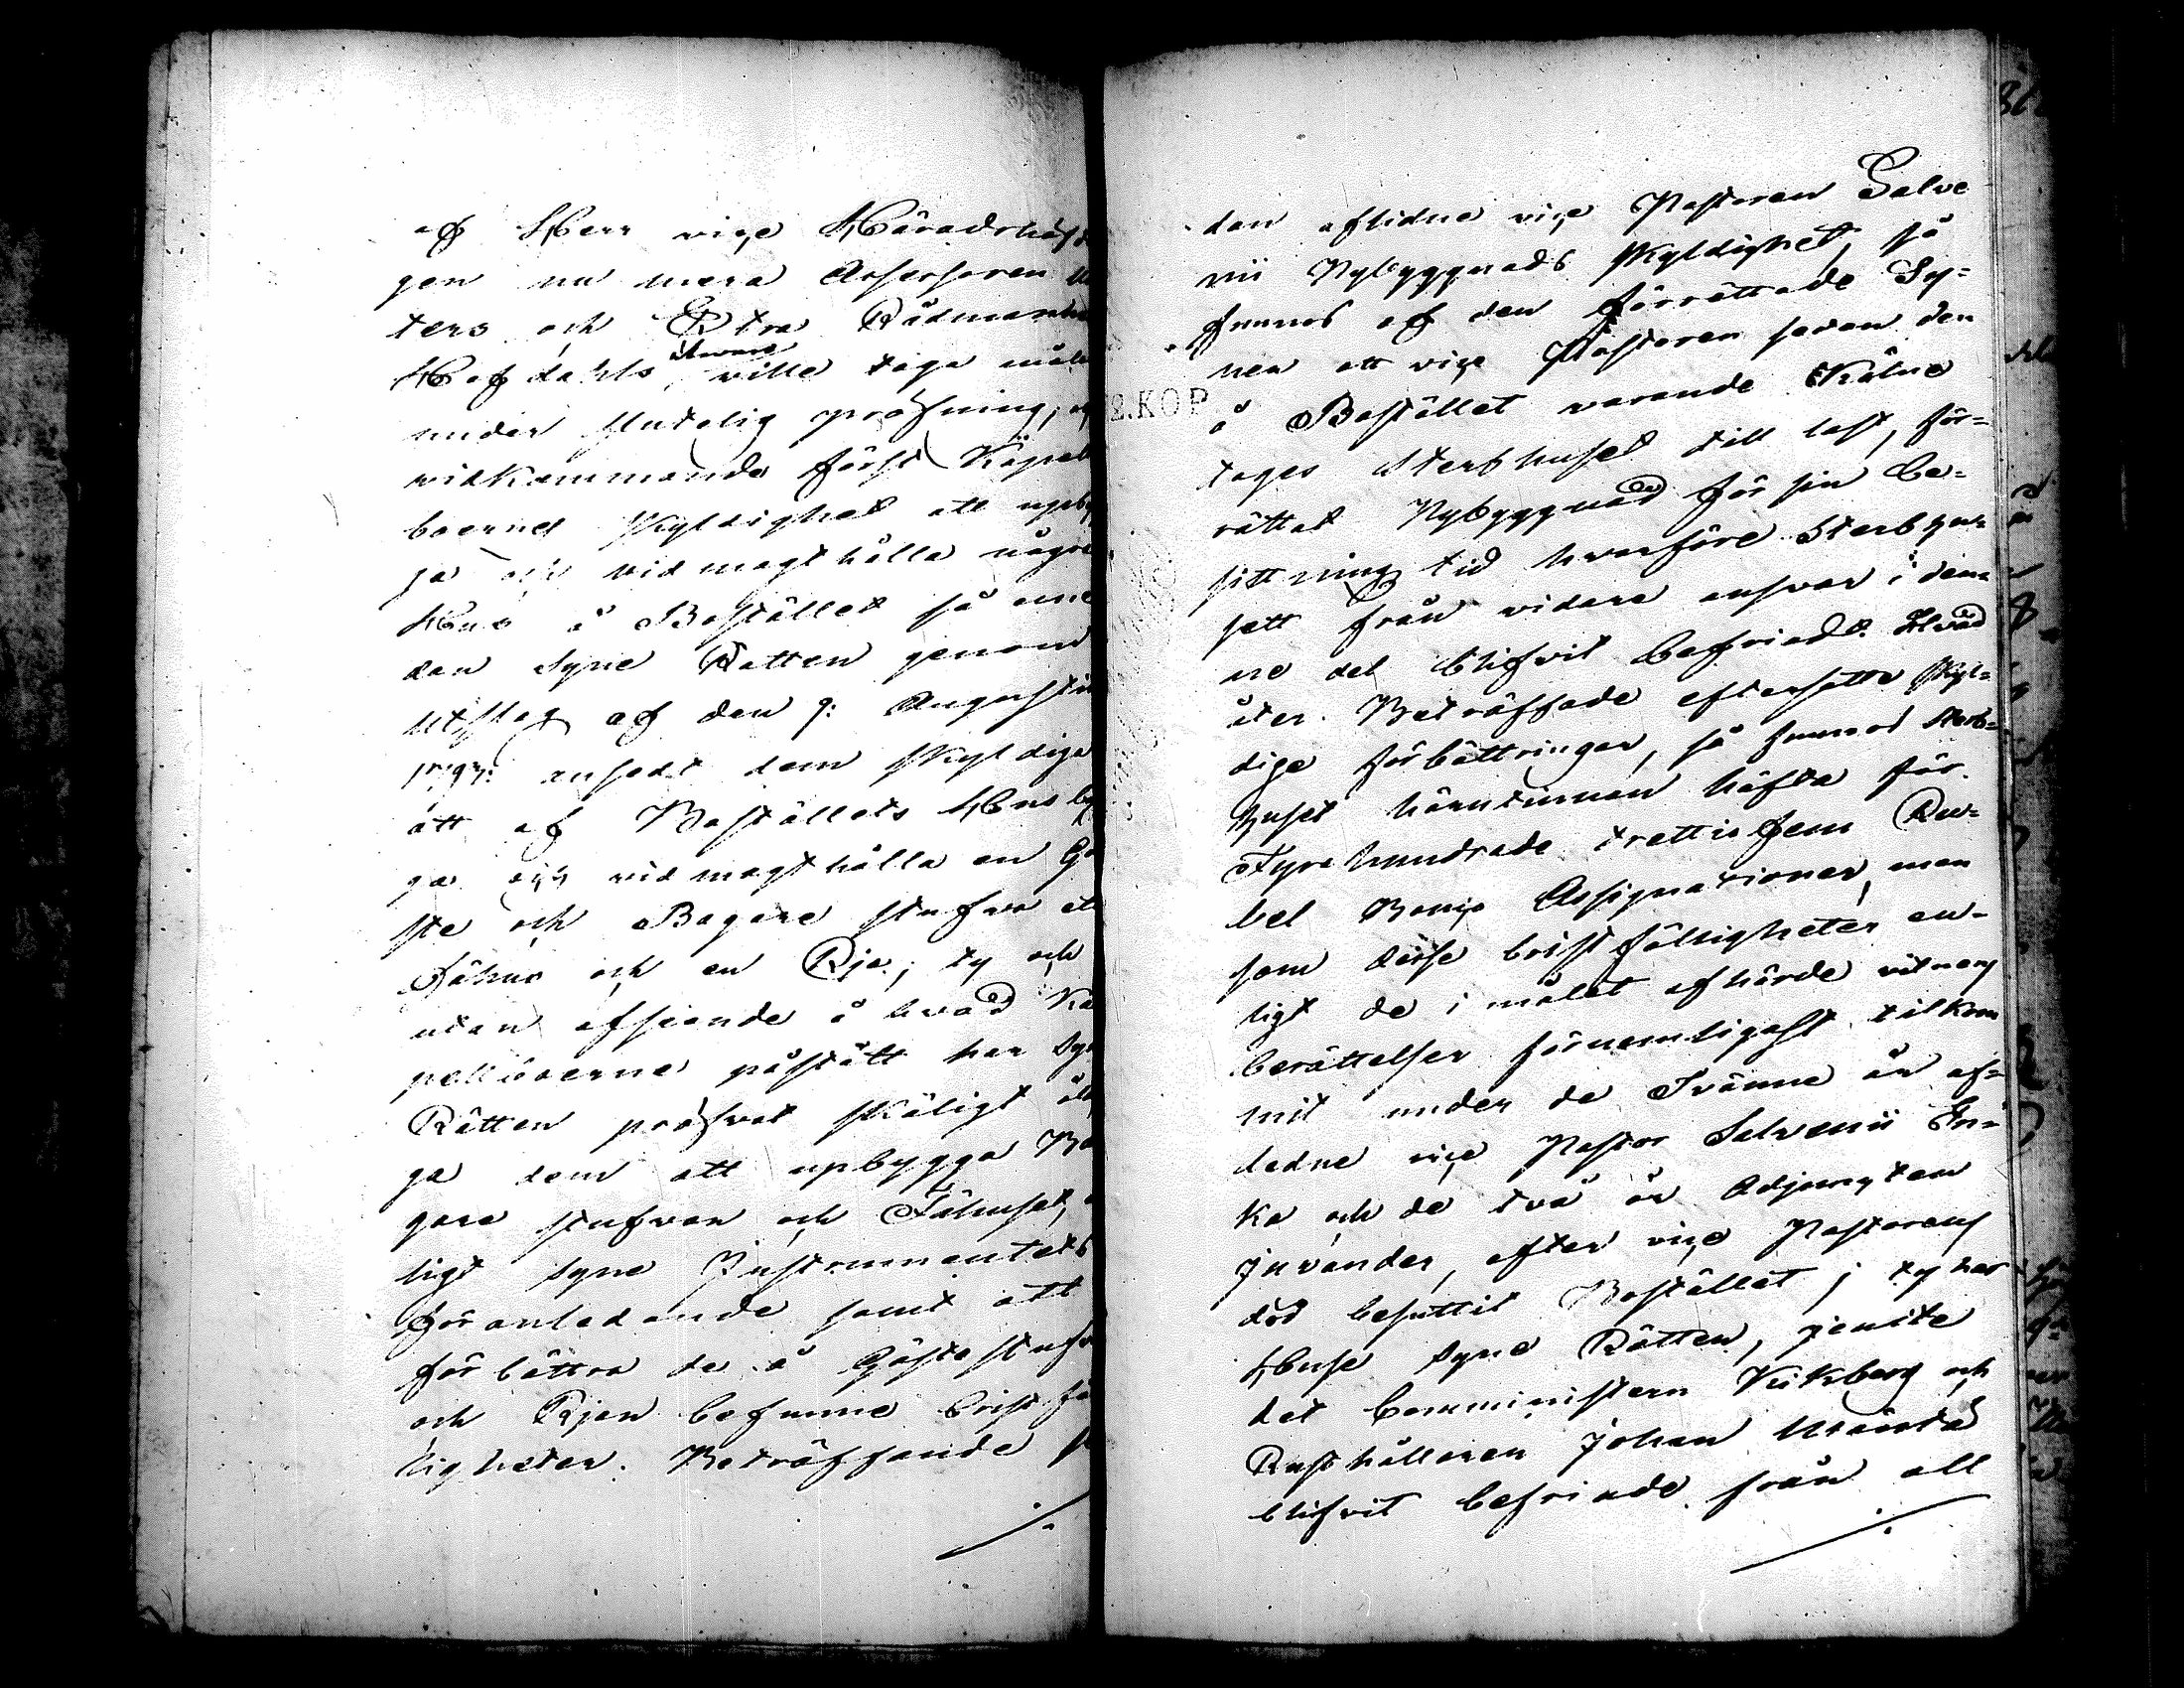 af Herr vice Häradshöfd
gen nu mera Assessoren
ters och Extra Rådmannen
Hofdahls answar ville taga mål
under slutelig pröfning, 
vidkommande först Kapel
boernes skyldighet att upby
ga och vidmagthålla några
Hus å Bostället så 
dan Syne Rätten genom
Utslag af den 9: Augusti
1797: ansedt dem skyldiga
att af Boställets Hus by
ga och vidmagthålla en Gä
ste och Bagare stufva et
Fähus och en Rja; ty och
utan afseende å hvad Ka
pellboerne påstått har Syn
Rätten pröfvat skäligt åläg
ga dem att upbygga Ba
gare stufvan och Fähuset,
ligt Syne Instrumentets
föranledande samt att
förbättra de å Gästestufv
och Rjan befunne bristfäl
ligheter. Beträffande
den aflidne vice Pastoren Salve
nii Nybyggnads skyldighet, så
funnos af den förrättade Sy-
nen att vice Pastoren sedan den
å Bostället varande Kölne
2.KOP
tages Sterbhuset till last, för-
rättat Nybyggnad för sin be-
sittning tid hvarföre Sterbhu-
sett från vidare ansvar i den-
ne del blifvit befriadt. Hvad
åter Beträffade eftersatte skyl-
dige förbättringar, så funnos Sterb-
huset härutinnan häfta för
Fyrahundrade trettiofem Ru-
bel Banco Assignationer, men
som desse bristfälligheter en-
ligt de i målet afhörde vitnens
berättelser förnemligast tilkom
mit under de Tvänne år af-
ledne vice Pastor Salvenii En-
ka och de två år Adjuncten
Juvander, efter vice Pastorens
död besuttit Bostället; ty har
Huse Syne Rätten, jemte
det Comministern Vikberg och
Rusthållaren Johan 
blifvit befriade från all